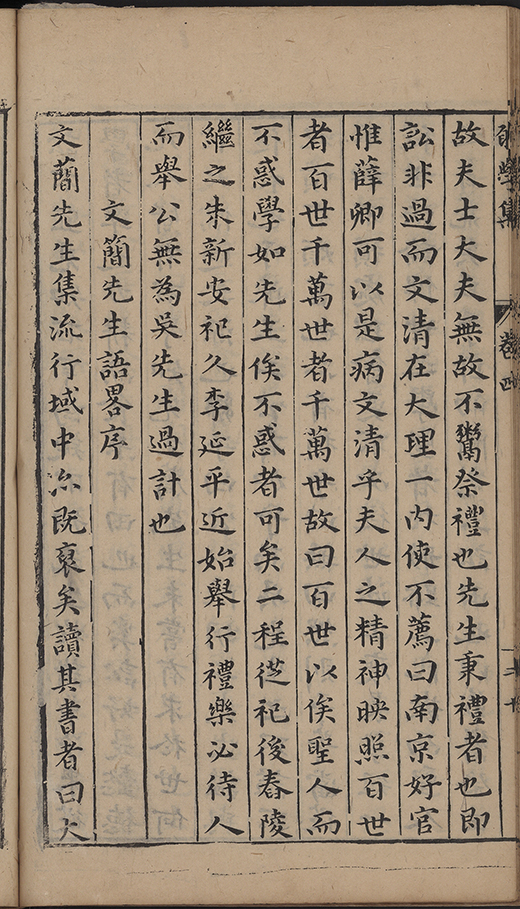 學集 卷四
故夫士大夫無故不鬻祭禮也先生秉禮者也即
訟非過而文清在大理一內使不薦曰南京好官
惟薛卿可以是病文清乎夫人之精神映照百世
者百世千萬世者千萬世故曰百世以俟聖人而
不惑學如先生俟不惑者可矣二程從祀後舂陵
繼之朱新安祀久李延平近始舉行禮樂必待人
而舉公無為吳先生過計也
文簡先生語畧序
文蕳先生集流行域中亦既裒矣讀其書者曰大